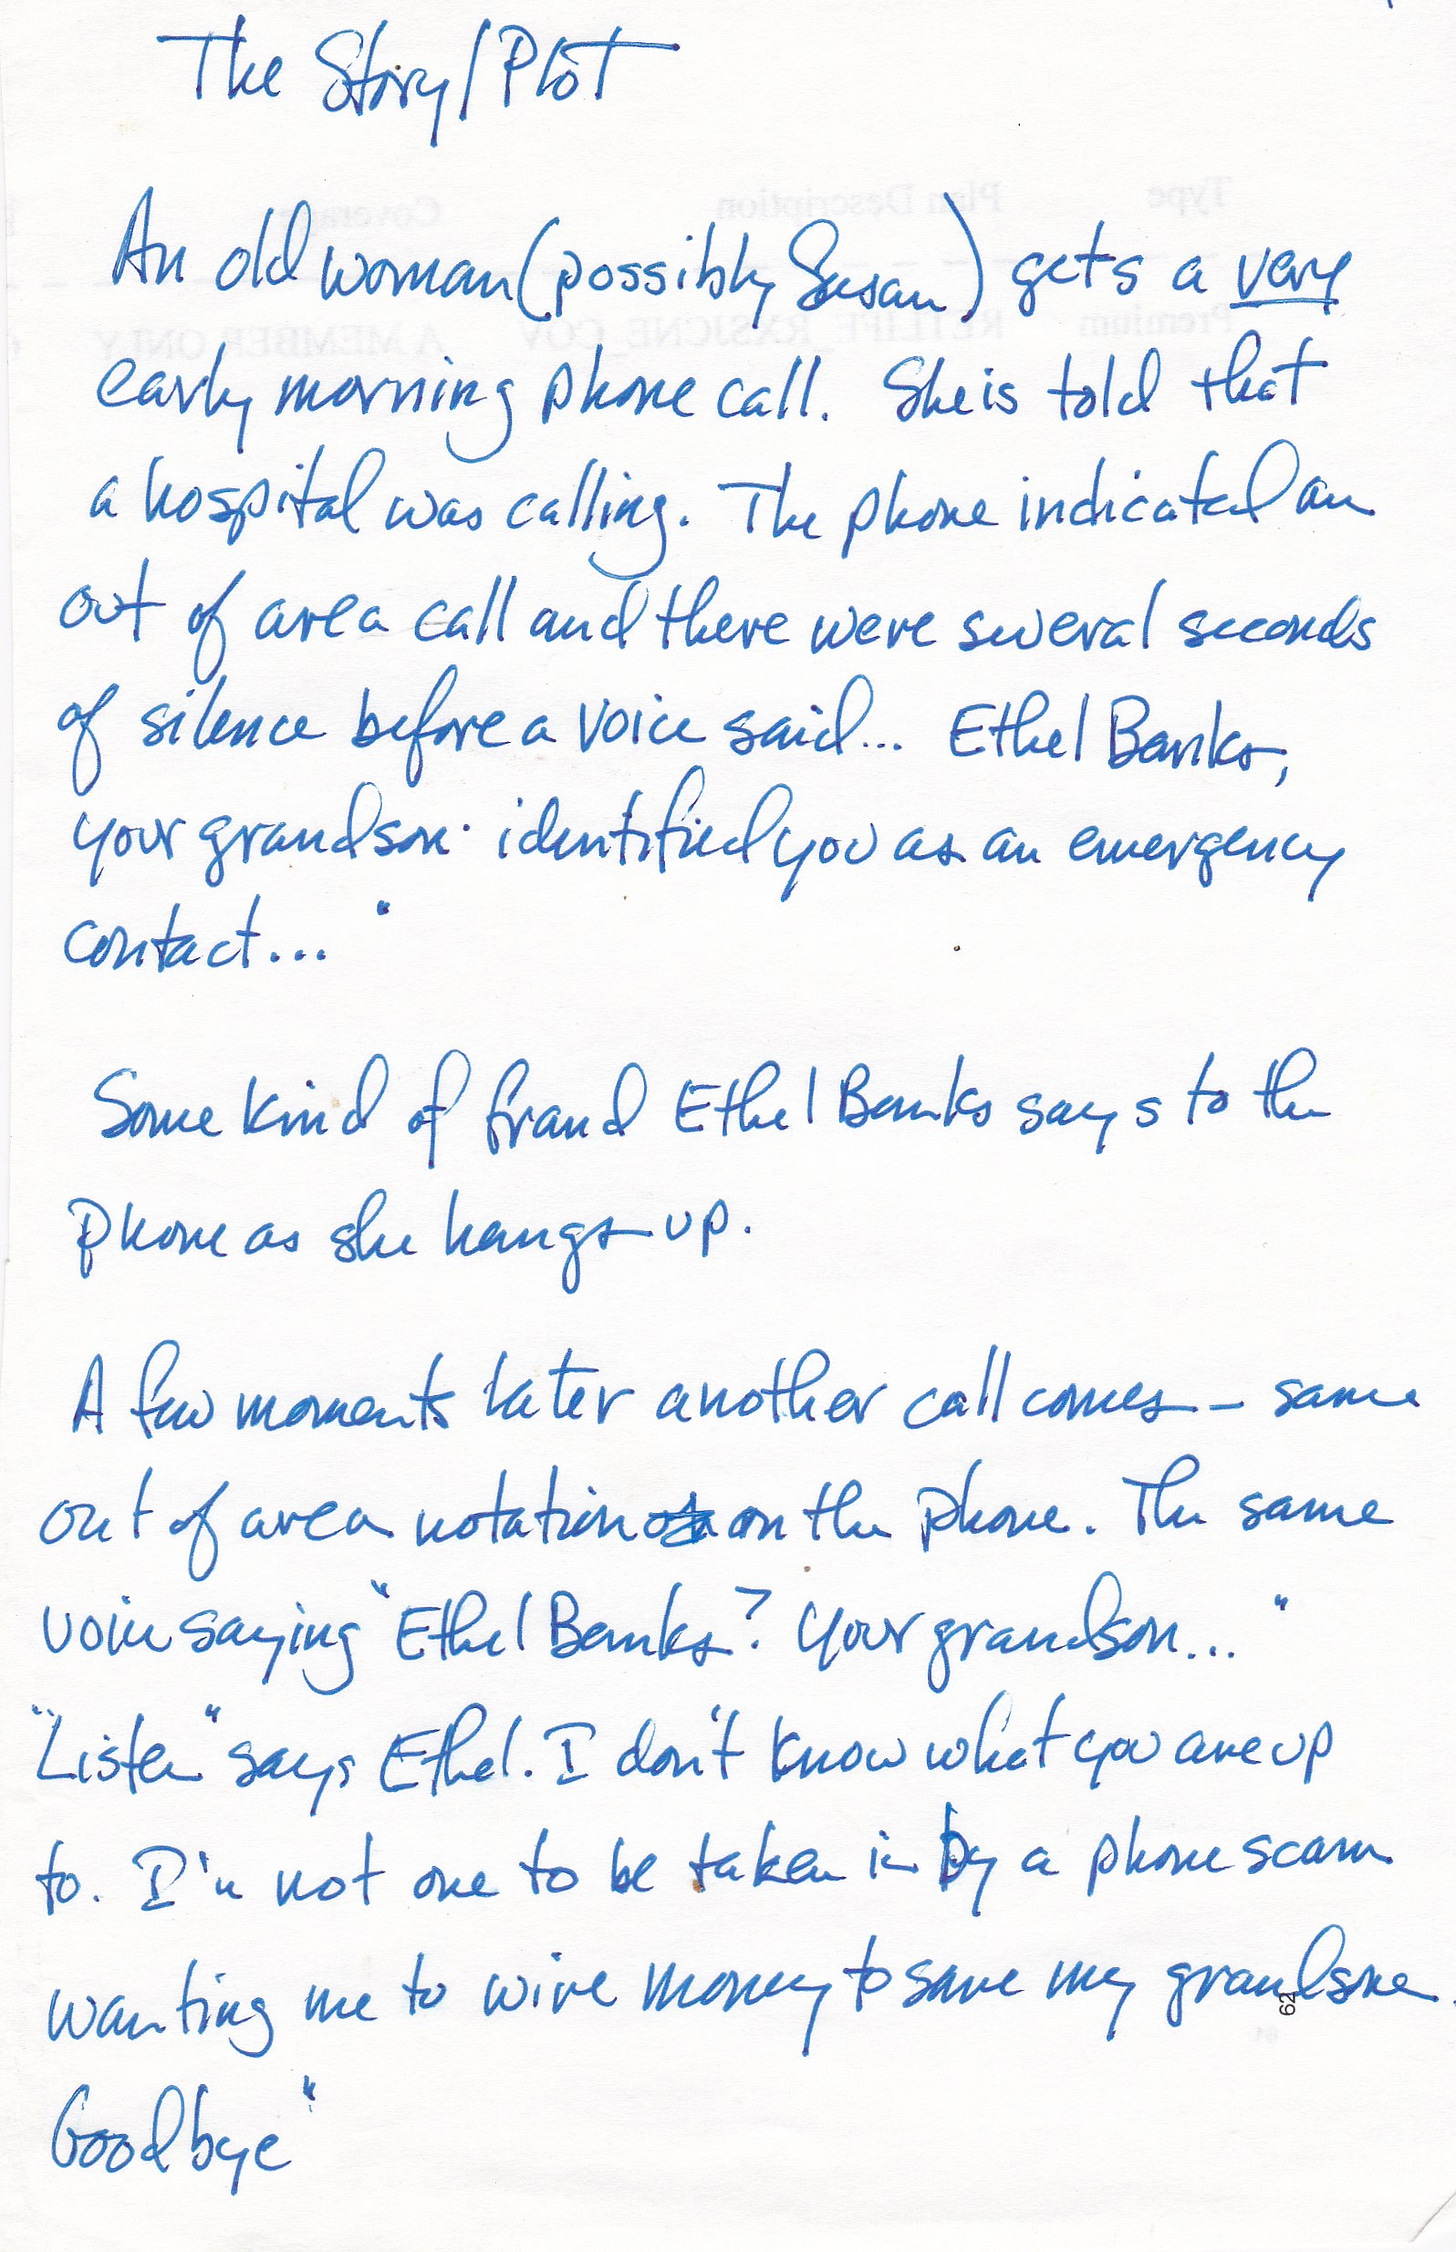 The Story/Plot
An old woman (possibly Susan) gets a very
early morning phone call. She is told that
a hospital was calling. The phone indicated an
out of area call and there were several seconds
of silence before a voice said... Ethel Banks,
your grandson identified you as an emergency
contact..."
Some kind of fraud Ethel Banks says to the
phone as she hangs up.
A few moments later another call comes - same
out of area notation on the phone. The same
voice saying "Ethel Banks? Your grandson..."
"Listen" says Ethel. I don't know what you are up
to. I'm not one to be taken in by a phone scam
wanting me to wire money to save my grandson.
62
Goodbye"
Type Plan Description Coverage
Premium RETLIFF_RXSJCNE_COV A MEMBER ONLY
61